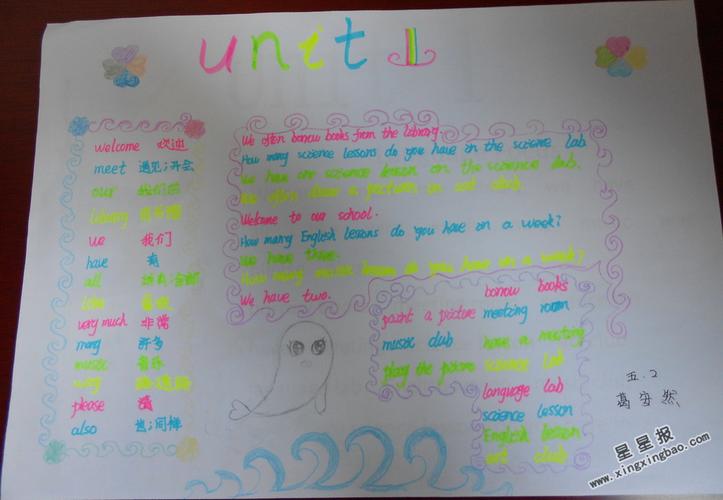 unit 1
welcome 欢迎
meet 遇见;开会
our 我们的
library 图书馆
we 我们
have 有
all
love 喜欢
very much 非常
many 许多
music 音乐
please 请
also 也;同样
We often borrow books from the library.
How many science lessons do you have in the science lab
We have one science lesson in the science lab.
We often draw a picture in art club.
Welcome to our school.
How many English lessons do you have in a week?
We have three.
How many music lesson do you have in a week?
We have two.
borrow books
paint a picture meeting room
music club have a meeting
play the science lab
language lab
science lesson
English lesson
art club
五.2
葛安然
星星报
www.xingxingbao.com